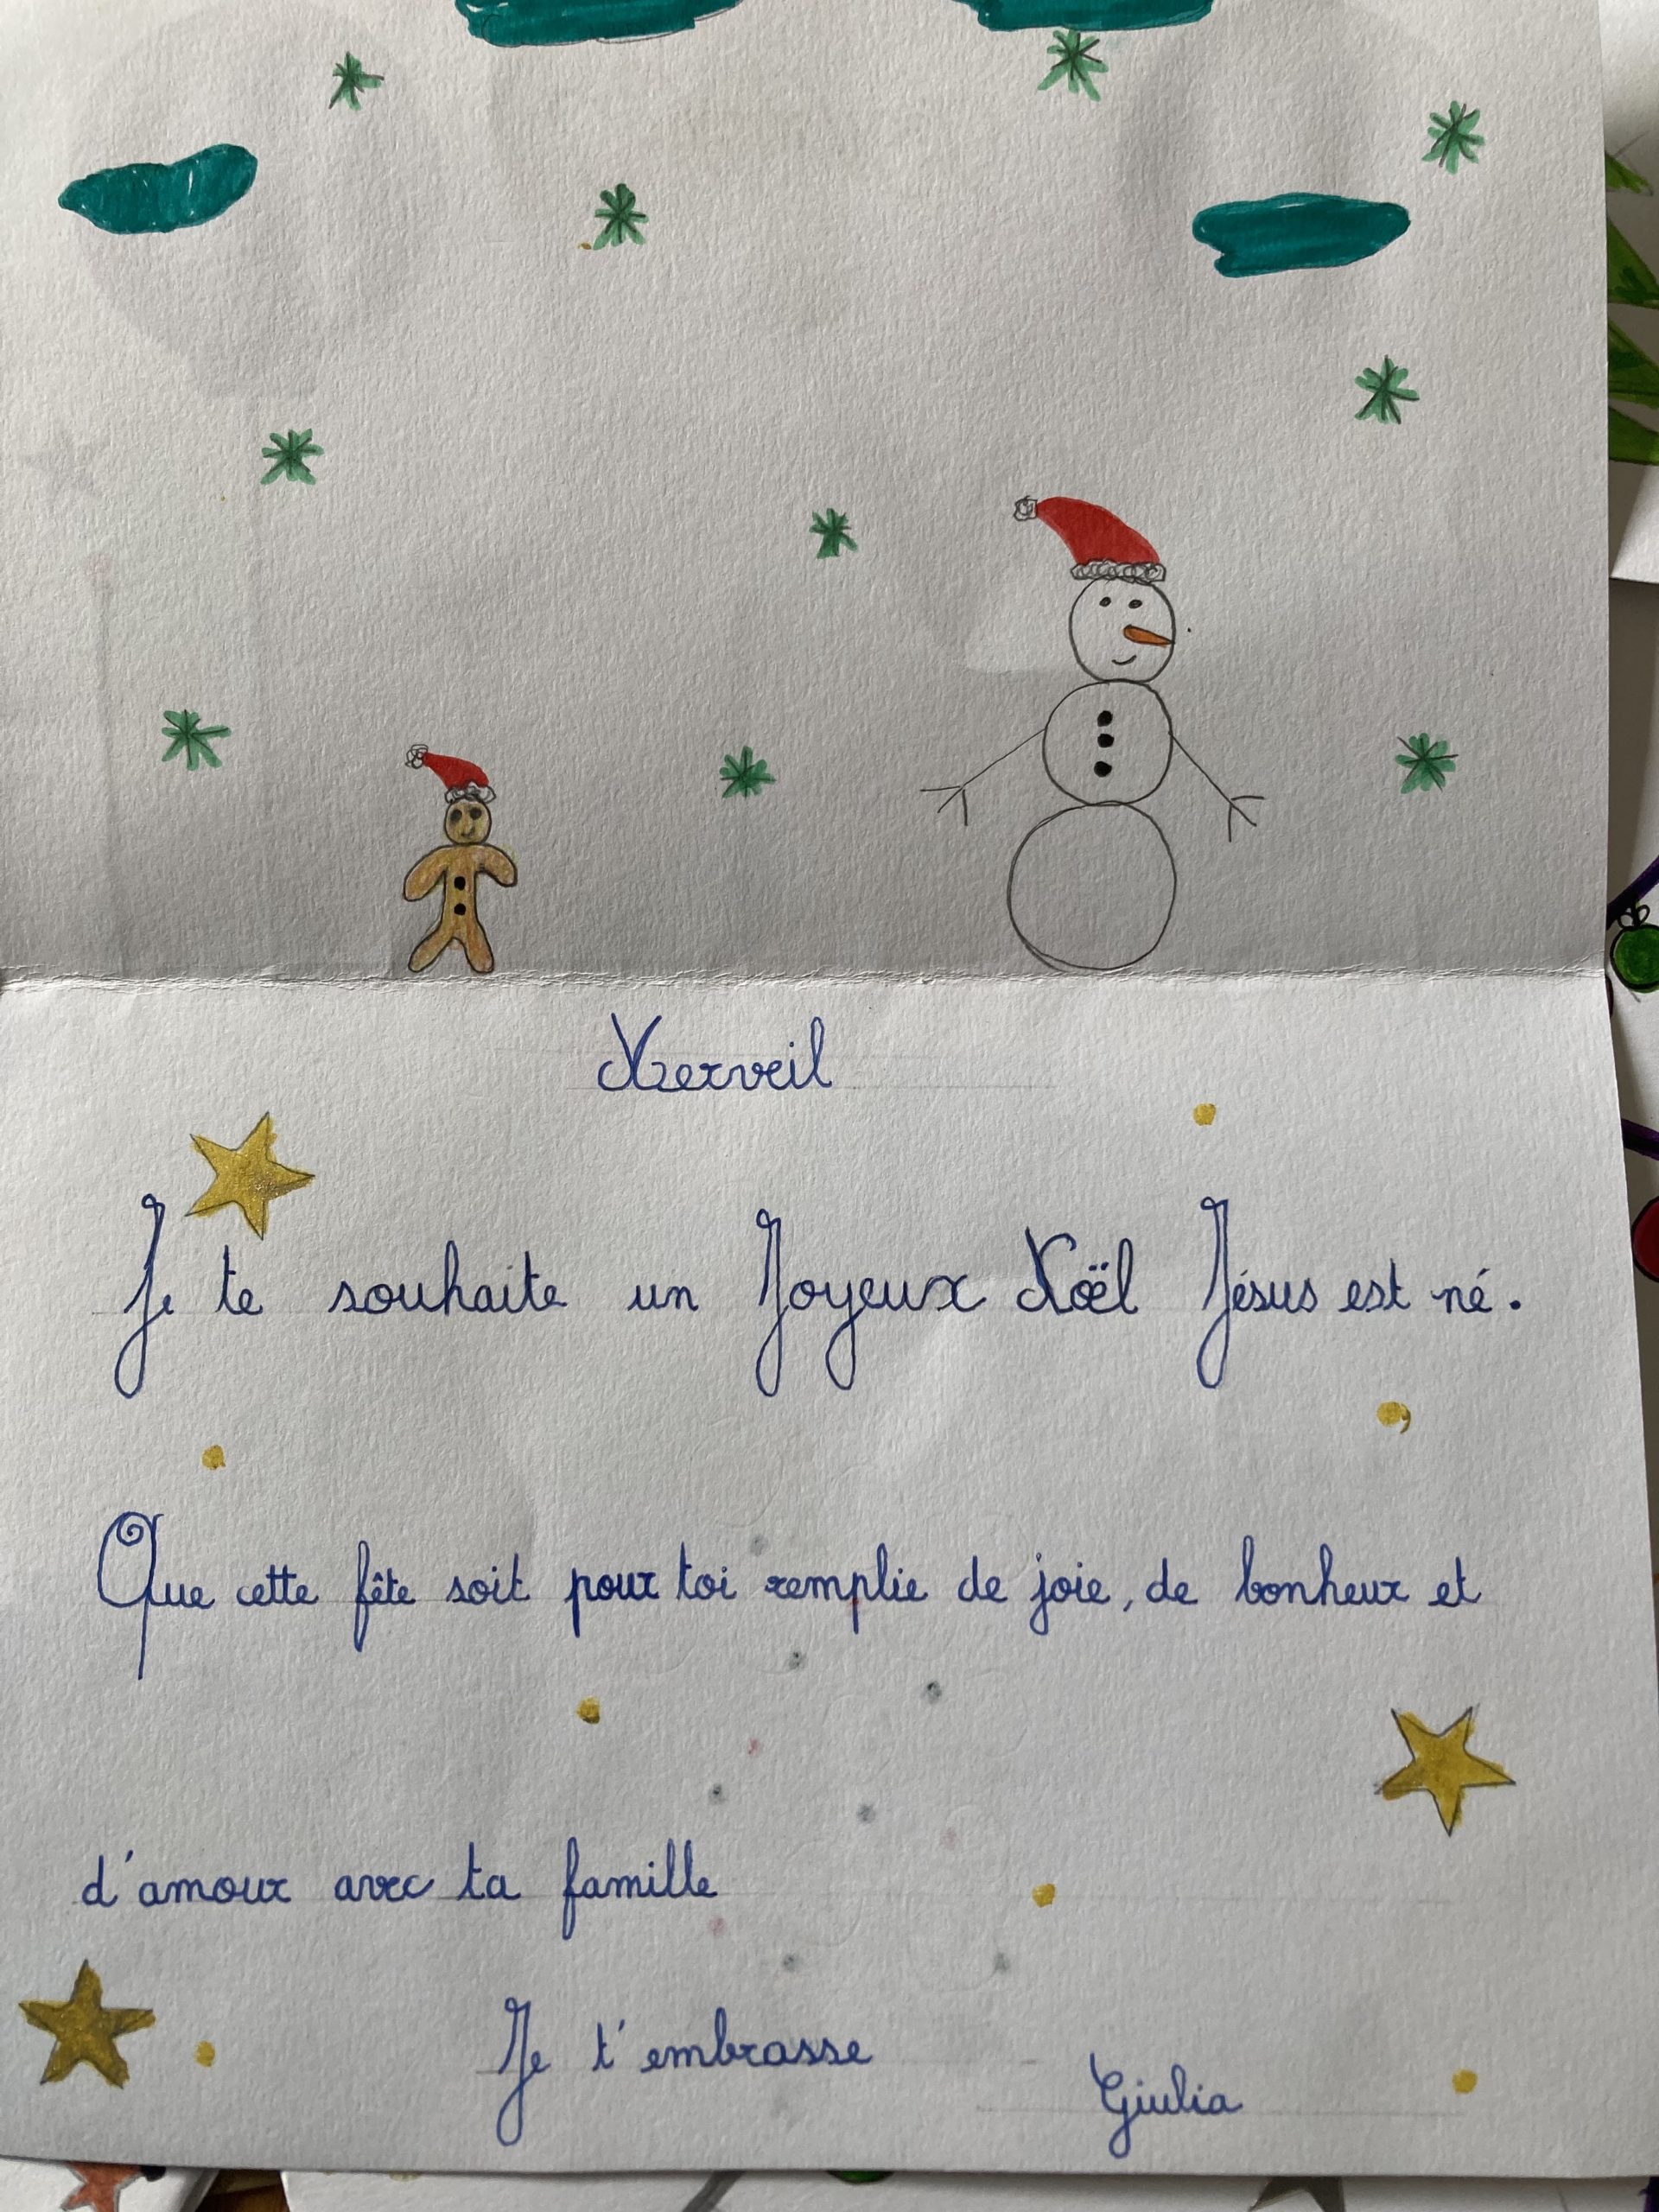 Merveil
Je te souhaite un Joyeux Noël Jésus est né.
Que cette fête soit pour toi remplie de joie, de bonheur et
d'amour avec ta famille
Je t'embrasse
Giulia